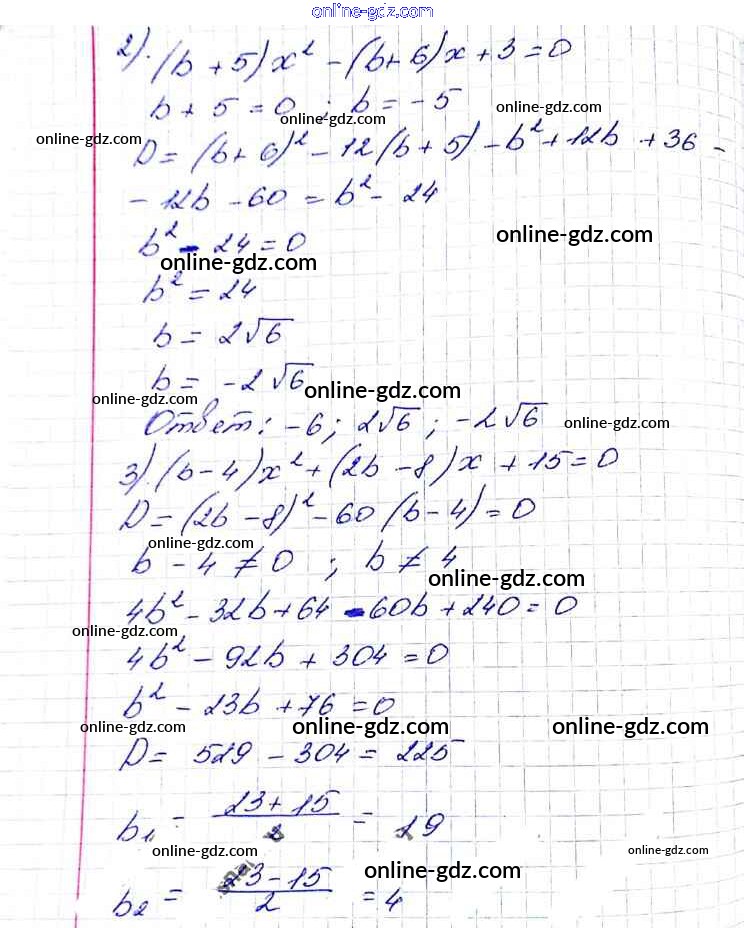 online-gdz.com
2). (b + 5)x² - (b + 6)x + 3 = 0
b + 5 = 0 ; b = -5
online-gdz.com
online-gdz.com
online-gdz.com
D = (b + 6)² - 12(b + 5) - b² + 12b + 36 -
- 12b - 60 = b² - 24
b² - 24 = 0
online-gdz.com
online-gdz.com
b² = 24
b = 2√6
b = -2√6
online-gdz.com
online-gdz.com
Ответ: -6; 2√6; -2√6
online-gdz.com
3). (b - 4)x² + (2b - 8)x + 15 = 0
D = (2b - 8)² - 60(b - 4) = 0
online-gdz.com
b - 4 ≠ 0 ; b ≠ 4
online-gdz.com
4b² - 32b + 64 - 60b + 240 = 0
online-gdz.com
4b² - 92b + 304 = 0
b² - 23b + 76 = 0
online-gdz.com
online-gdz.com
online-gdz.com
D = 529 - 304 = 225
b₁ = (23 + 15)/2 = 19
online-gdz.com
online-gdz.com
b₂ = (23 - 15)/2 = 4
online-gdz.com